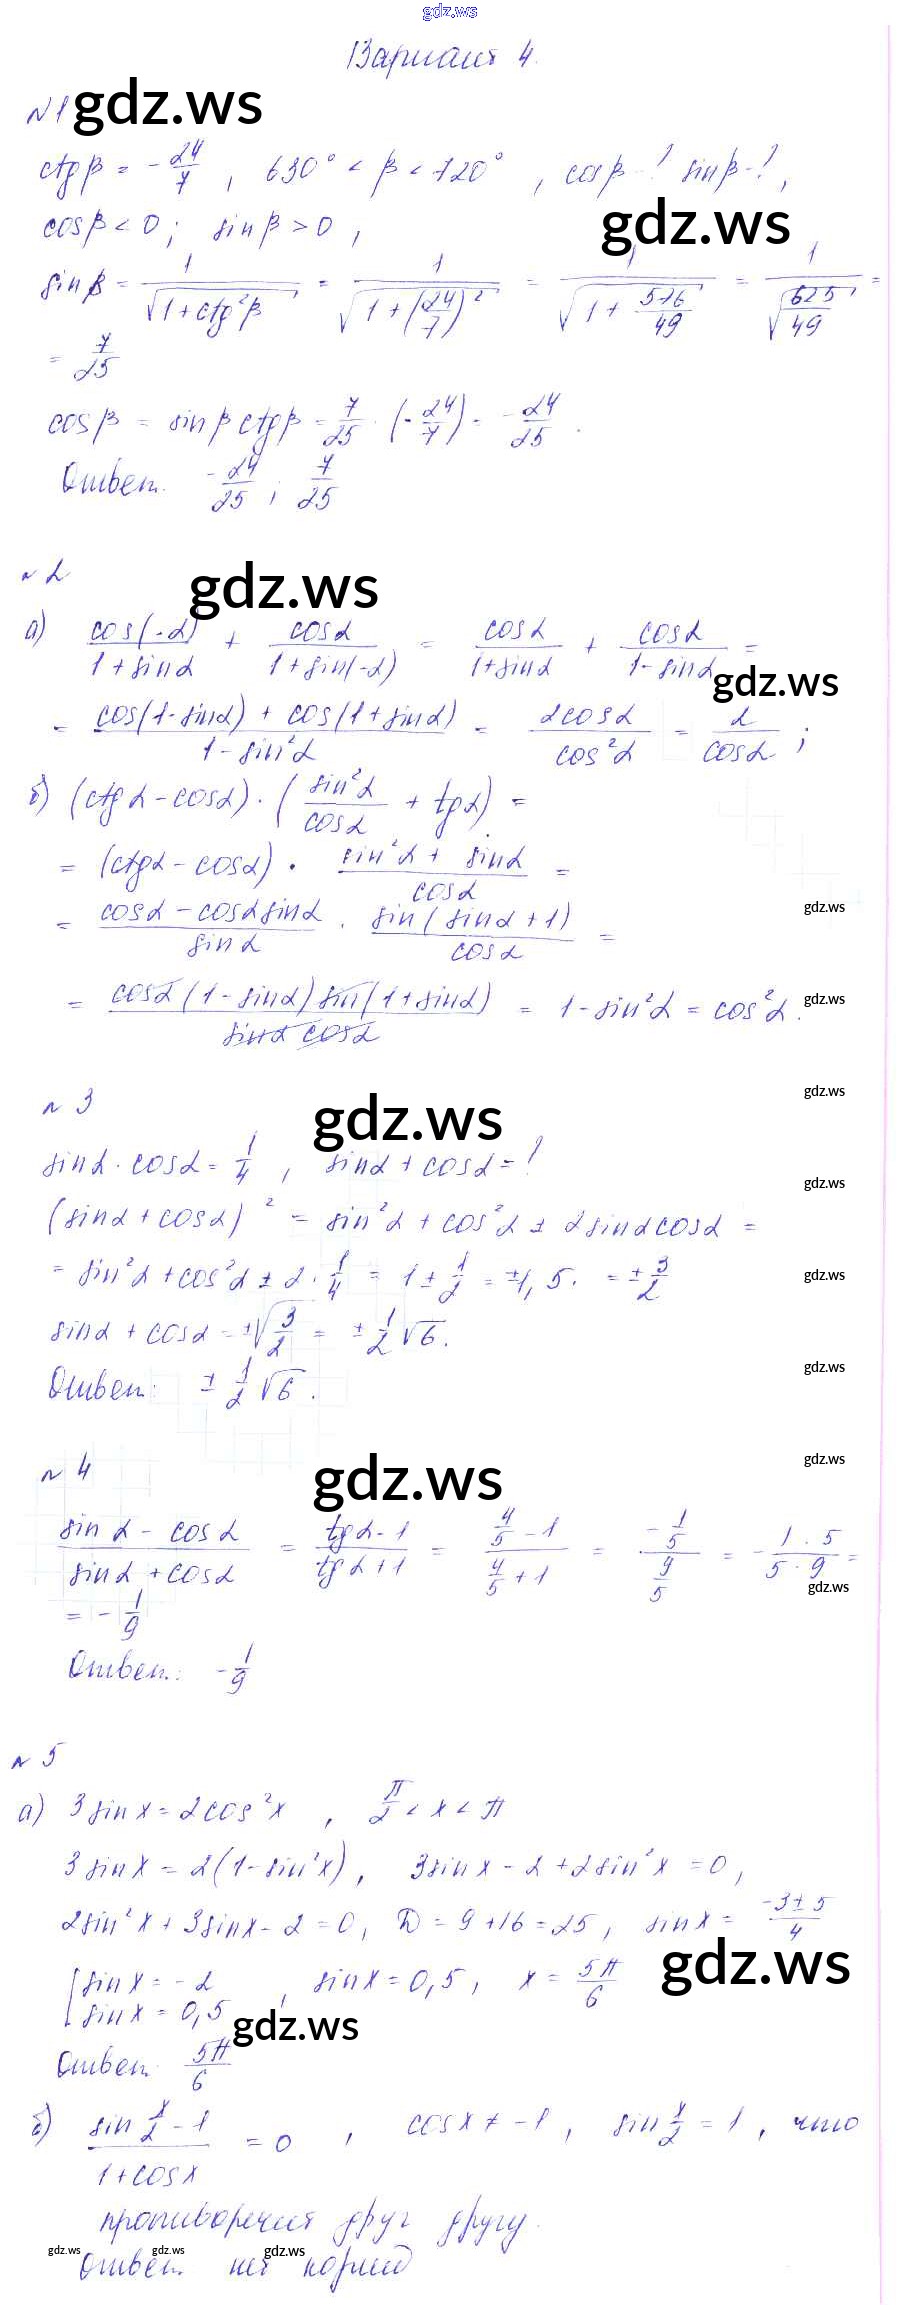 gdz.ws
Вариант 4.
№1 gdz.ws
ctgβ = -24/7, 630° < β < 720°, cosβ-? sinβ-?,
gdz.ws
cosβ < 0; sinβ > 0,
sinβ = 1/√(1+ctg²β) = 1/√(1+(24/7)²) = 1/√(1+576/49) = 1/√(625/49) =
= 7/25
cosβ = sinβ ctgβ = 7/25 · (-24/7) = -24/25.
Ответ. -24/25; 7/25
№2 gdz.ws
а) cos(-α)/(1+sinα) + cosα/(1+sin(-α)) = cosα/(1+sinα) + cosα/(1-sinα) =
gdz.ws
= (cos(1-sinα) + cos(1+sinα))/(1-sin²α) = 2cosα/cos²α = 2/cosα;
б) (ctgα - cosα) · (sin²α/cosα + tgα) =
= (ctgα - cosα) · (sin²α + sinα)/cosα =
gdz.ws
= (cosα - cosα sinα)/sinα · sin(sinα+1)/cosα =
gdz.ws
= cosα(1-sinα) sin(1+sinα)/(sinα cosα) = 1-sin²α = cos²α.
gdz.ws
№3 gdz.ws
sinα · cosα = 1/4, sinα + cosα = ?
gdz.ws
(sinα + cosα)² = sin²α + cos²α ± 2sinαcosα =
= sin²α + cos²α ± 2 · 1/4 = 1 ± 1/2 = ±1,5. = ±3/2
gdz.ws
sinα + cosα = ±√(3/2) = ±1/2 √6.
gdz.ws
Ответ: ±1/2 √6.
№4 gdz.ws
gdz.ws
(sinα - cosα)/(sinα + cosα) = (tgα-1)/(tgα+1) = (4/5 - 1)/(4/5 + 1) = (-1/5)/(9/5) = -(1·5)/(5·9) =
gdz.ws
= -1/9
Ответ: -1/9
№5
а) 3sinx = 2cos²x, π/2 < x < π
3sinx = 2(1-sin²x), 3sinx - 2 + 2sin²x = 0,
2sin²x + 3sinx - 2 = 0, D = 9+16 = 25, sinx = (-3±5)/4
gdz.ws
[sinx = -2
sinx = 0,5, sinx = 0,5, x = 5π/6
gdz.ws
Ответ. 5π/6
б) (sin x/2 - 1)/(1+cosx) = 0, cosx ≠ -1, sin x/2 = 1, что
противоречит друг другу.
gdz.ws gdz.ws gdz.ws
Ответ. нет корней